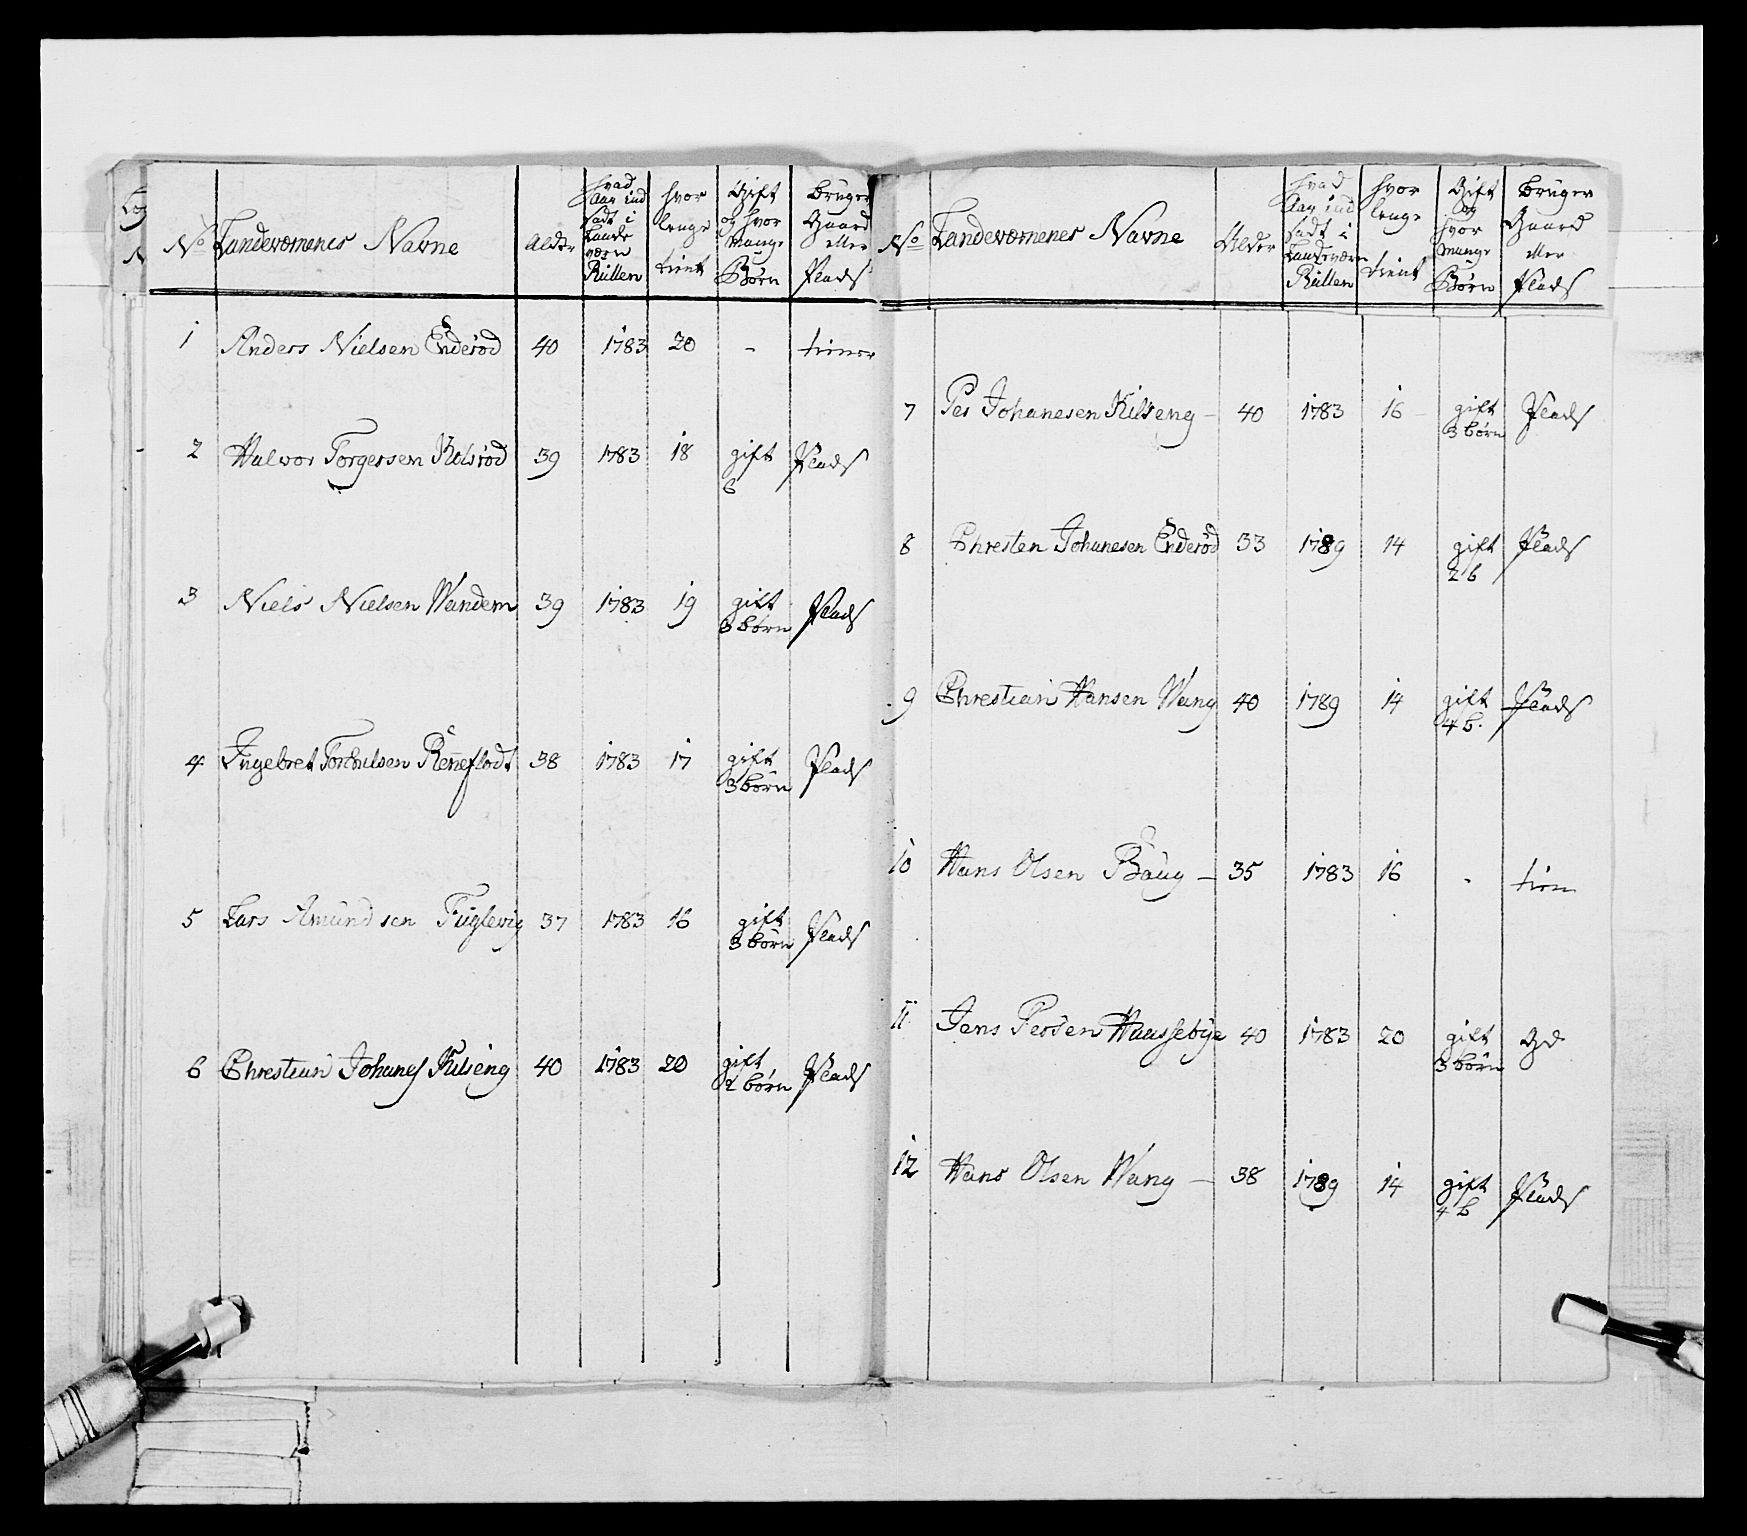 No Landeværnenes Navne Alder hvad Aar ind sadt i Lande værn Rullen hvor lenge tient Gift og hvor mange Børn bruger Gaard eller Plads
1 Anders Nielsen Enderød 40 1783 20 - tiener
2 Halvor Torgersen Rolsrød 39 1783 18 gift 6 Plads
3 Niels Nielsen Wandem 39 1783 19 gift 3 børn Plads
4 Ingebret Torkulsen Renneflodt 38 1783 17 gift 3 børn Plads
5 Lars Amundsen Fuglevig 37 1783 16 gift 3 børn Plads
6 Chrestian Johanes Kilseng 40 1783 20 gift 2 børn Plads
No Landeværnenes Navne Alder hvad Aar ind sadt i Landeværn Rullen hvor lenge tient Gift og hvor mange Børn bruger Gaard eller Plads
7 Per Johanesen Kilseng - 40 1783 16 - gift 3 børn Plads
8 Chresten Johanesen Enderød 33 1789 14 gift 2 b Plads
9 Chrestian Hansen Wang 40 1789 14 gift 4 b. Plads
10 Hans Olsen Baug - 35 1783 16 - tien
11 Jens Persen Haassebye 40 1783 20 gift 3 børn Gd
12 Hans Olsen Wang - 38 1789 14 gift 4 b Plads